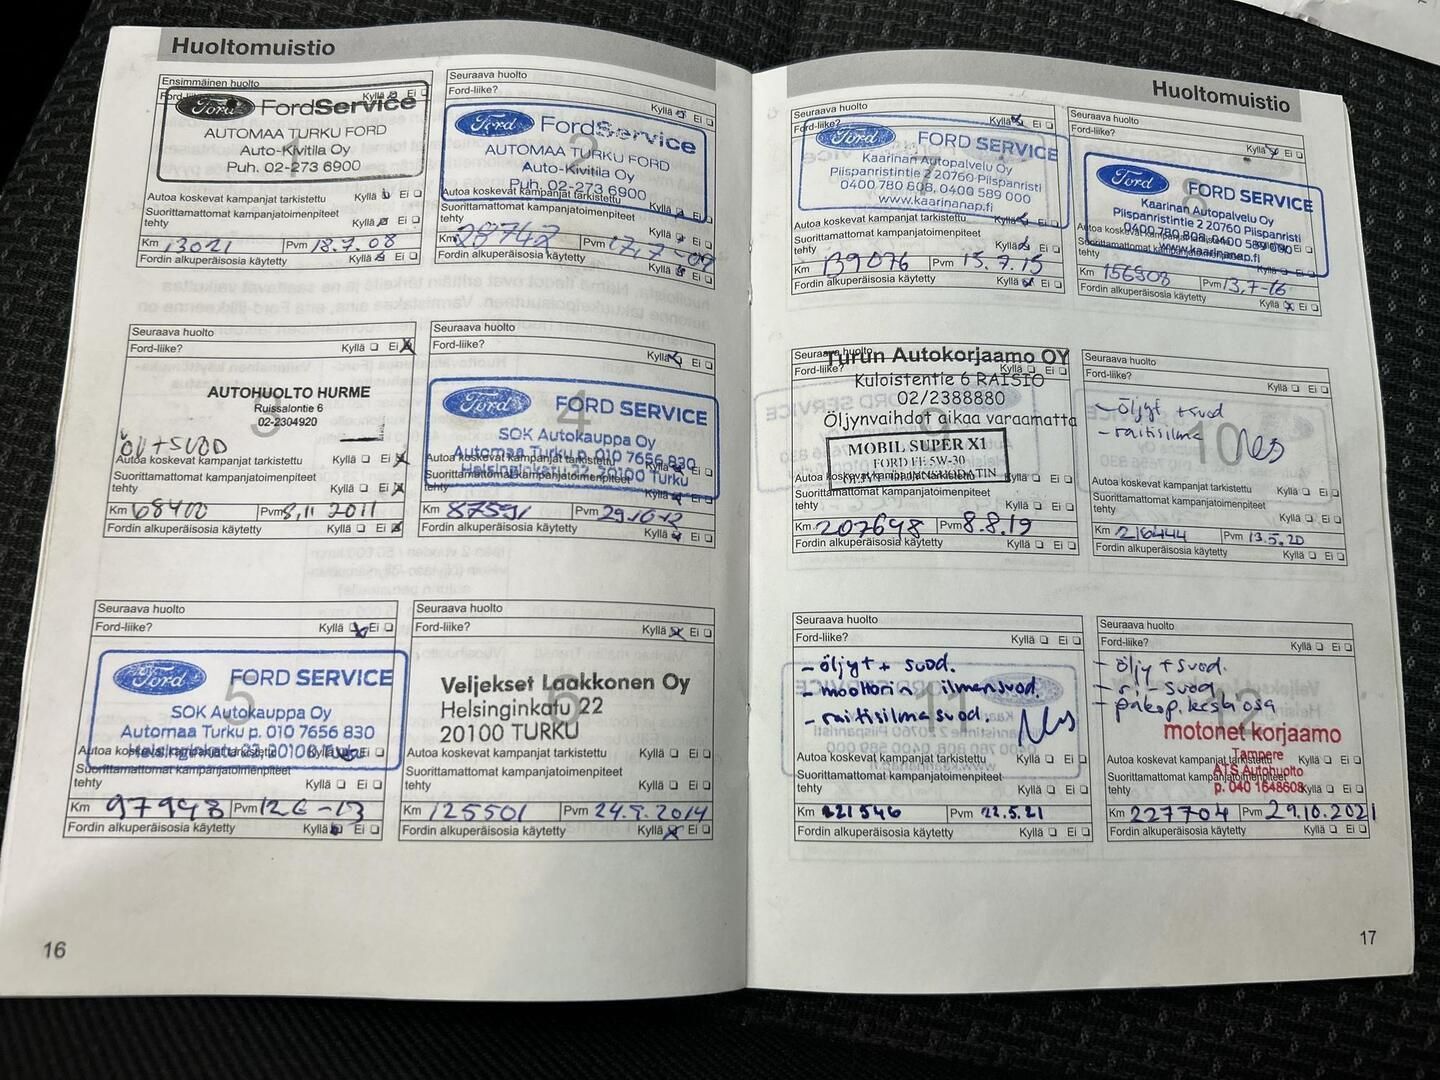 Huoltomuistio
Ensimmäinen huolto
Ford-liike? Kyllä Ei
Ford FordService
AUTOMAA TURKU FORD
Auto-Kivitila Oy
Puh. 02-273 6900
1
Autoa koskevat kampanjat tarkistettu Kyllä Ei
Suorittamattomat kampanjatoimenpiteet
tehty Kyllä Ei
Km 13021 Pvm 18.7.08
Fordin alkuperäisosia käytetty Kyllä Ei
Seuraava huolto
Ford-liike? Kyllä Ei
Ford FordService
AUTOMAA TURKU FORD
Auto-Kivitila Oy
Puh. 02-273 6900
2
Autoa koskevat kampanjat tarkistettu
Suorittamattomat kampanjatoimenpiteet
tehty Kyllä Ei
Km 28742 Pvm 17.7-09
Fordin alkuperäisosia käytetty Kyllä Ei
Seuraava huolto
Ford-liike? Kyllä Ei
AUTOHUOLTO HURME
Ruissalontie 6
02-2304920
3
ÖLJ+SUOD
Autoa koskevat kampanjat tarkistettu Kyllä Ei
Suorittamattomat kampanjatoimenpiteet
tehty Kyllä Ei
Km 68400 Pvm 8,11 2011
Fordin alkuperäisosia käytetty Kyllä Ei
Seuraava huolto
Ford-liike? Kyllä
Ford FORD SERVICE
4
SOK Autokauppa Oy
Automaa Turku p. 010 7656 830
Helsinginkatu 22, 20100 Turku
Autoa koskevat kampanjat tarkistettu Kyllä
Suorittamattomat kampanjatoimenpiteet
tehty Kyllä
Km 87591 Pvm 29.10-12
Fordin alkuperäisosia käytetty Kyllä Ei
Seuraava huolto
Ford-liike? Kyllä Ei
Ford FORD SERVICE
5
SOK Autokauppa Oy
Automaa Turku p. 010 7656 830
Helsinginkatu 22, 20100 Turku
Autoa koskevat kampanjat tarkistettu Kyllä Ei
Suorittamattomat kampanjatoimenpiteet
tehty Kyllä Ei
Km 97948 Pvm 12.6-13
Fordin alkuperäisosia käytetty Kyllä Ei
Seuraava huolto
Ford-liike? Kyllä Ei
Veljekset Laakkonen Oy
Helsinginkatu 22
20100 TURKU
6
Autoa koskevat kampanjat tarkistettu Kyllä Ei
Suorittamattomat kampanjatoimenpiteet
tehty Kyllä Ei
Km 125501 Pvm 2014
Fordin alkuperäisosia käytetty Kyllä Ei
16
Huoltomuistio
Seuraava huolto
Ford-liike? Kyllä Ei
Ford FORD SERVICE
7
Kaarinan Autopalvelu Oy
Piispanristintie 2 20760 Piispanristi
0400 780 808, 0400 589 000
www.kaarinanap.fi
Autoa koskevat kampanjat tarkistettu Kyllä Ei
Suorittamattomat kampanjatoimenpiteet
tehty Kyllä Ei
Km 139076 Pvm 15.7.15
Fordin alkuperäisosia käytetty Kyllä Ei
Seuraava huolto
Ford-liike? Kyllä Ei
Ford FORD SERVICE
8
Kaarinan Autopalvelu Oy
Piispanristintie 2 20760 Piispanristi
0400 780 808, 0400 589 000
www.kaarinanap.fi
Autoa koskevat kampanjat tarkistettu
Suorittamattomat kampanjatoimenpiteet
tehty Kyllä Ei
Km 156808 Pvm 13,7-16
Fordin alkuperäisosia käytetty Kyllä Ei
Seuraava huolto
Ford-liike? Kyllä Ei
Turun Autokorjaamo OY
Kuloistentie 6 RAISIO
02/2388880
Öljynvaihdot aikaa varaamatta
9
MOBIL SUPER X1
FORD FE 5W-30
Autoa koskevat kampanjat tarkistettu
Suorittamattomat kampanjatoimenpiteet
tehty Kyllä Ei
Km 207648 Pvm 8.8.19
Fordin alkuperäisosia käytetty Kyllä Ei
Seuraava huolto
Ford-liike? Kyllä Ei
- öljyt + suod
- raitisilma
10
Autoa koskevat kampanjat tarkistettu Kyllä Ei
Suorittamattomat kampanjatoimenpiteet
tehty Kyllä Ei
Km 216444 Pvm 13.5.20
Fordin alkuperäisosia käytetty Kyllä Ei
Seuraava huolto
Ford-liike? Kyllä Ei
- öljyt + suod.
- moottorin ilmansuod.
- raitisilmasuod.
11
Autoa koskevat kampanjat tarkistettu Kyllä Ei
Suorittamattomat kampanjatoimenpiteet
tehty Kyllä Ei
Km 221546 Pvm 22.5.21
Fordin alkuperäisosia käytetty Kyllä Ei
Seuraava huolto
Ford-liike? Kyllä Ei
- öljy + suod.
- ri-suod
- pakop. keskiosa
12
motonet korjaamo
Tampere
ATS Autohuolto
p. 040 1648608
Autoa koskevat kampanjat tarkistettu Kyllä Ei
Suorittamattomat kampanjatoimenpiteet
tehty Kyllä Ei
Km 227704 Pvm 29.10.2021
Fordin alkuperäisosia käytetty Kyllä Ei
17